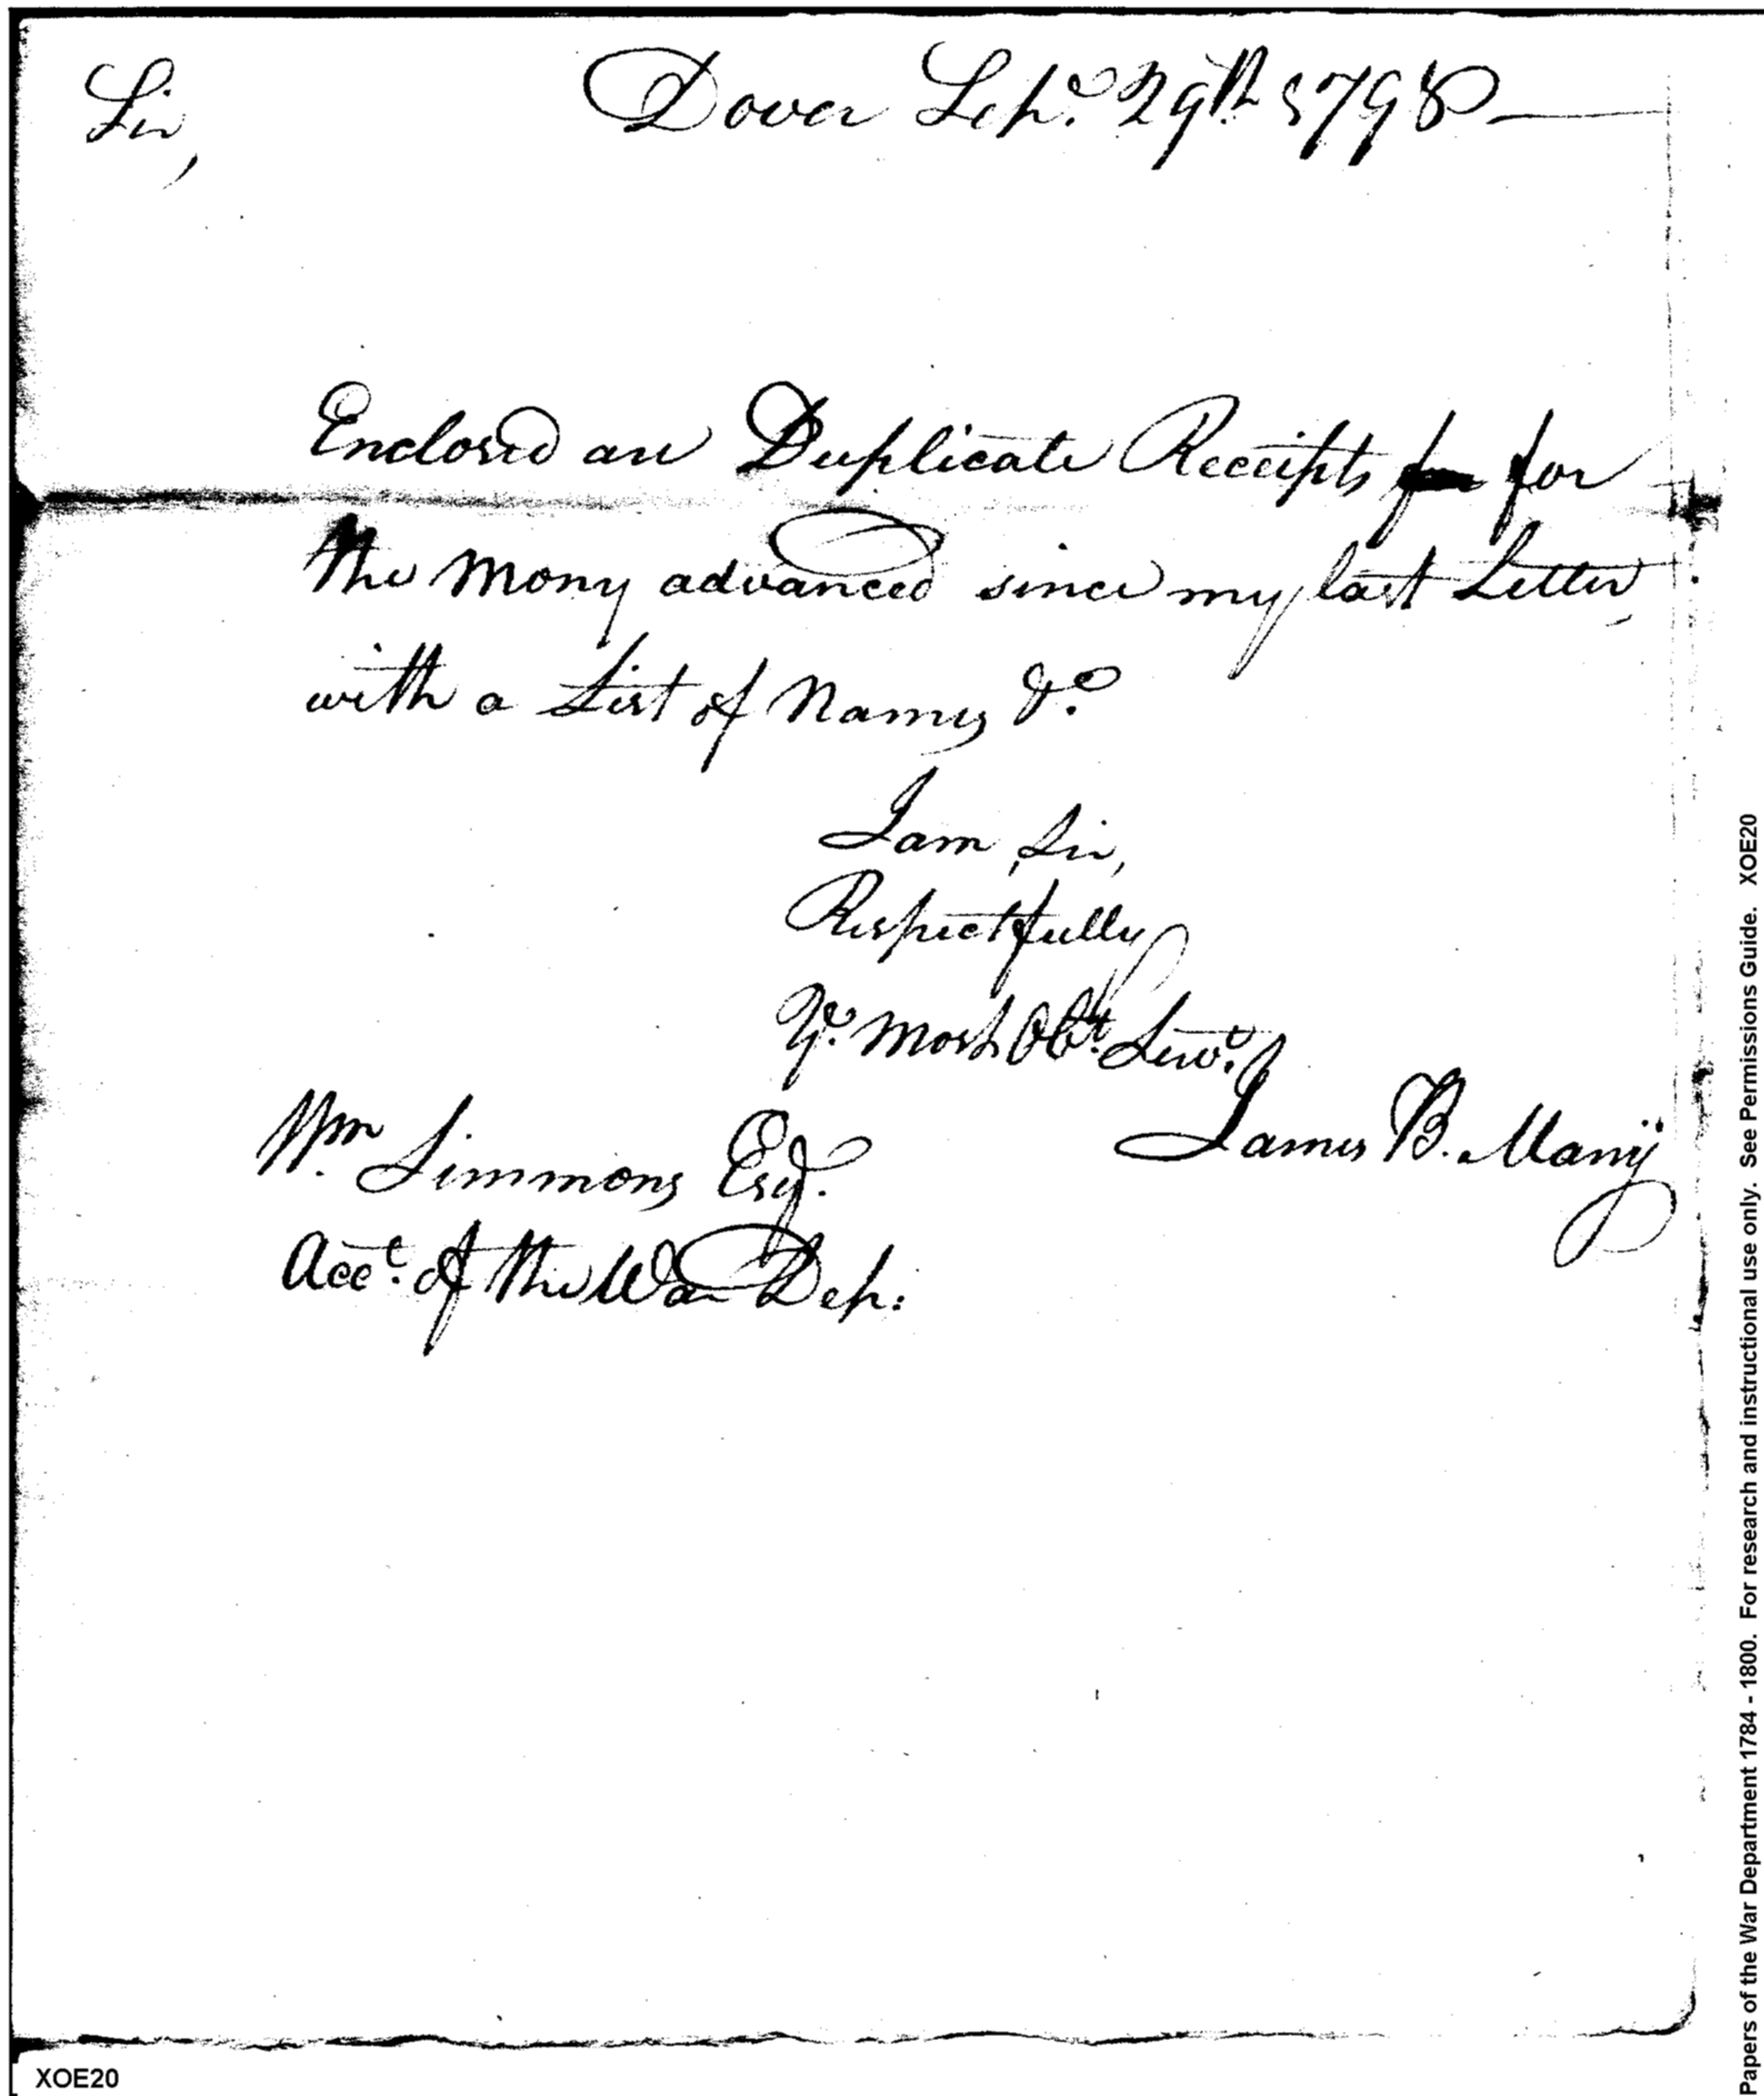 Sir,
Dover Sepr. 29th 1798
Enclosed are Duplicate Receipts for for
the Mony advanced since my last Letter,
with a List of Names &c.
I am, Sir,
Respectfully
Yr. Most Obt. Servt.
James B. Many
Wm Simmons Esqr.
Acct. of the War Dep:
XOE20
Papers of the War Department 1784 - 1800. For research and instructional use only. See Permissions Guide. XOE20